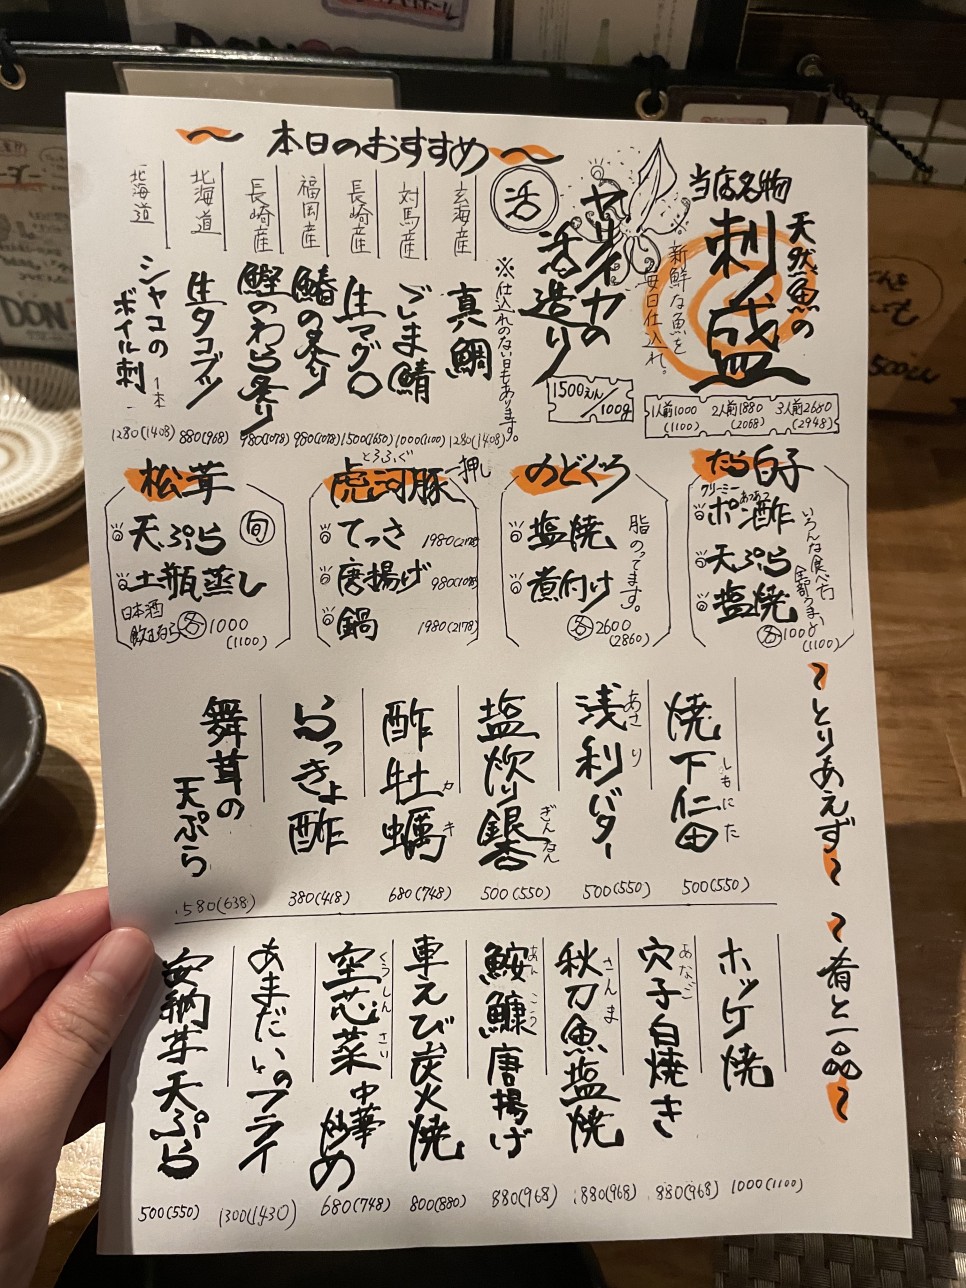 本日のおすすめ
当店名物
天然魚の
刺盛
新鮮な魚を
毎日仕入れ。
1人前1000 2人前1880 3人前2680
(1100) (2068) (2948)
活
ヤリイカの
活造り
1500えん/100g
※仕入れのない日もあります。
玄海産
真鯛
1280(1408)
対馬産
ごま鯖
1000(1100)
長崎産
生マグロ
1500(1650)
福岡産
鰆の炙り
980(1078)
長崎産
鰹のわら炙り
980(1078)
北海道
生タコブツ
880(968)
北海道
シャコの
ボイル刺
1本
1280(1408)
たら白子
クリーミー
あつあつ
ポン酢
天ぷら
塩焼
いろんな食べ方
全部うまい
各1000
(1100)
のどぐろ
塩焼
煮付け
脂のってます。
各2600
(2860)
とらふぐ
虎河豚
一押し
てっさ 1980(2178)
唐揚げ 980(1078)
鍋 1980(2178)
松茸
旬
天ぷら
土瓶蒸し
日本酒
飲むなら
各1000
(1100)
~とりあえず~
焼下仁田
しもにた
500(550)
浅利バター
あさり
500(550)
塩炊り銀杏
ぎんなん
500(550)
酢牡蠣
カキ
680(748)
らっきょ酢
380(418)
舞茸の
天ぷら
580(638)
~肴と一品~
ホッケ焼
1000(1100)
穴子白焼き
あなご
880(968)
秋刀魚塩焼
さんま
880(968)
鮟鱇唐揚げ
あんこう
880(968)
車えび炭火焼
800(880)
空芯菜中華炒め
くうしんさい
680(748)
あまだいのフライ
1300(1430)
安納芋天ぷら
500(550)
DON
500えん